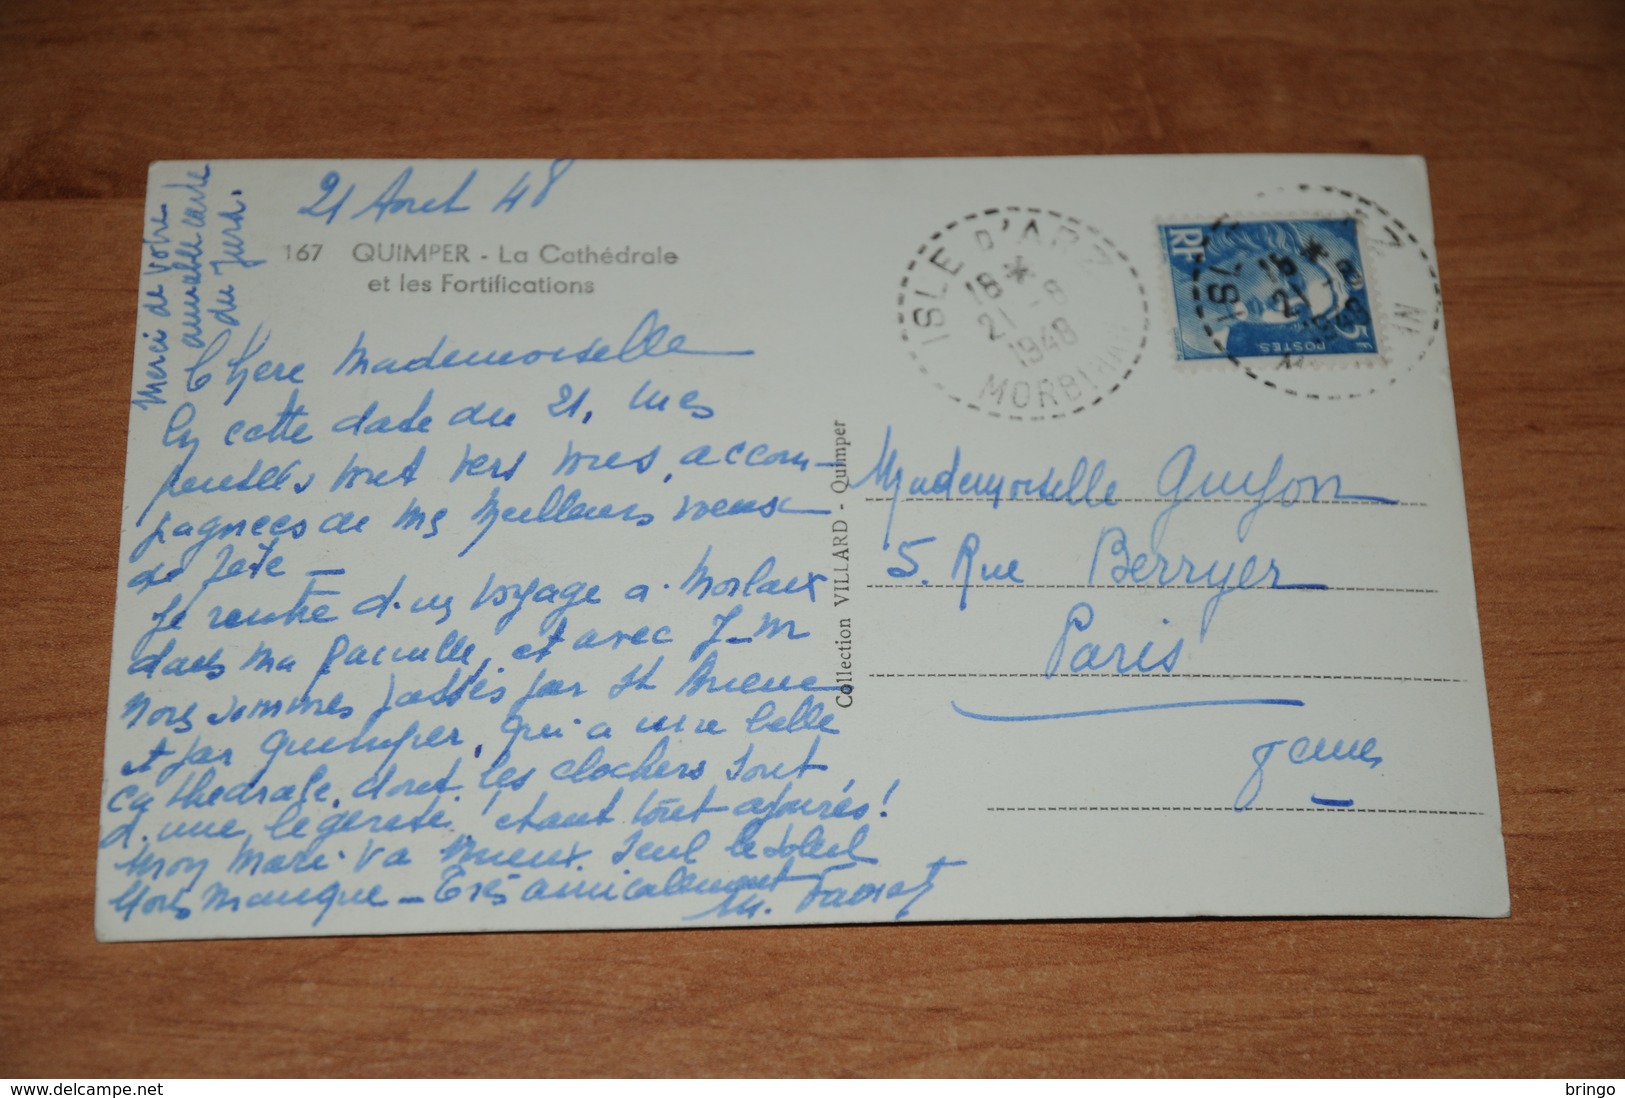 21 Aout 48
167 QUIMPER - La Cathédrale
et les Fortifications
Merci de votre
aimable carte
du Jura.
Chere Mademoiselle
En cette date du 21, mes
pensées vont vers vous, accom-
pagnées de mes meilleurs voeux
de fête -
Je rentre d'un voyage a Morlaix
dans ma famille, et avec J-M
nous sommes passés par St
et par Quimper, qui a une belle
cathedrale, dont les clochers sont
d'une légereté! étant tout ajourés!
Mon mari va mieux, seul le soleil
nous manque - Très amicalement
M.
Collection VILLARD - Quimper
ISLE D'ARZ
18 * 8
21 - 8
1948
MORBIHAN
RF
5F
POSTES
ISLE D'ARZ
18 * 8
21 - 8
1948
MORBIHAN
Mademoiselle Guyon
5. Rue Berryer
Paris
8eme
delcampe.net
bringo